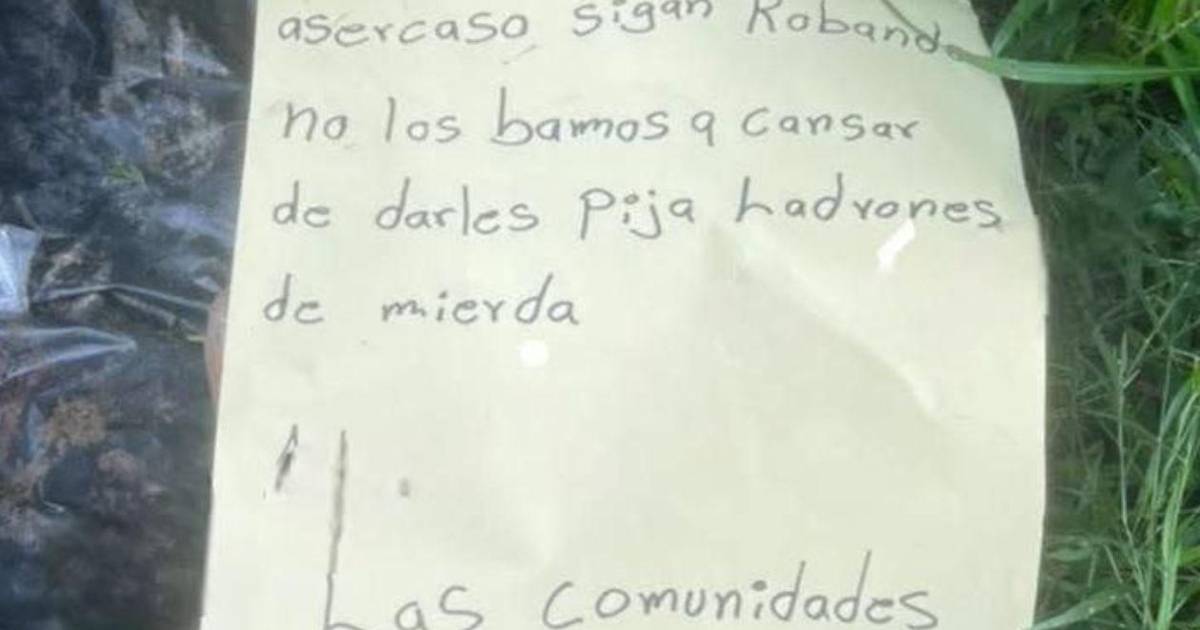 asercaso sigan Robando
no los bamos a cansar
de darles pija Ladrones
de mierda
Las comunidades